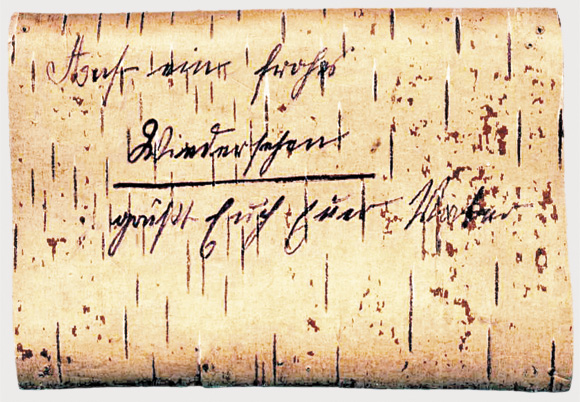 Auf ein frohes
Wiedersehen
grüßt Euch Euer Vater